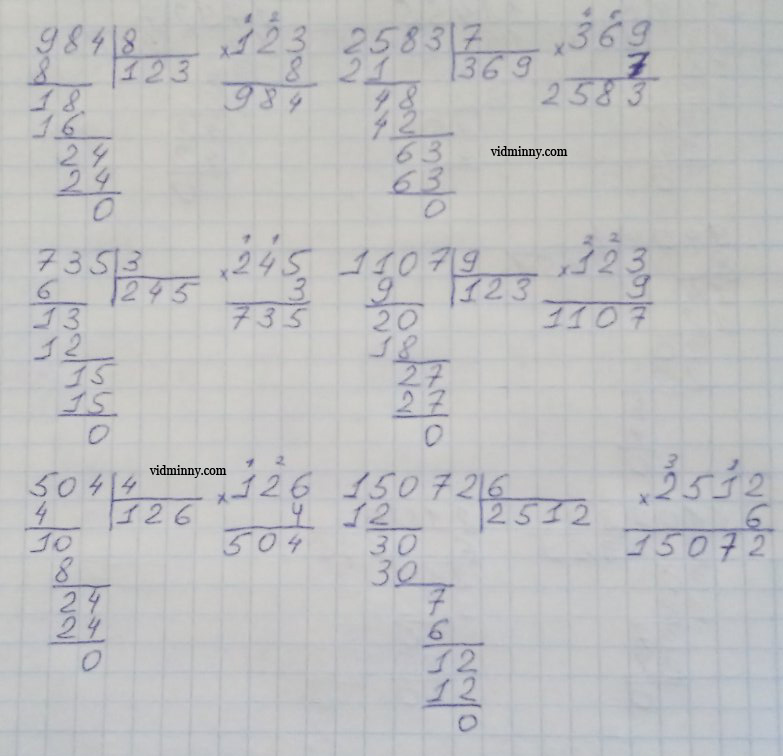 984 8 ×¹1²23 2583 7 ×⁴3⁶69
8 123 8 21 369 7
18 984 48 2583
16 42
24 63 vidminny.com
24 63
0 0
735 3 ×¹2¹45 1107 9 ×²1²23
6 245 3 9 123 9
13 735 20 1107
12 18
15 27
15 27
0 0
vidminny.com
504 4 ×¹1²26 15072 6 ×³25¹12
4 126 4 12 2512 6
10 504 30 15072
8 30
24 7
24 6
0 12
12
0